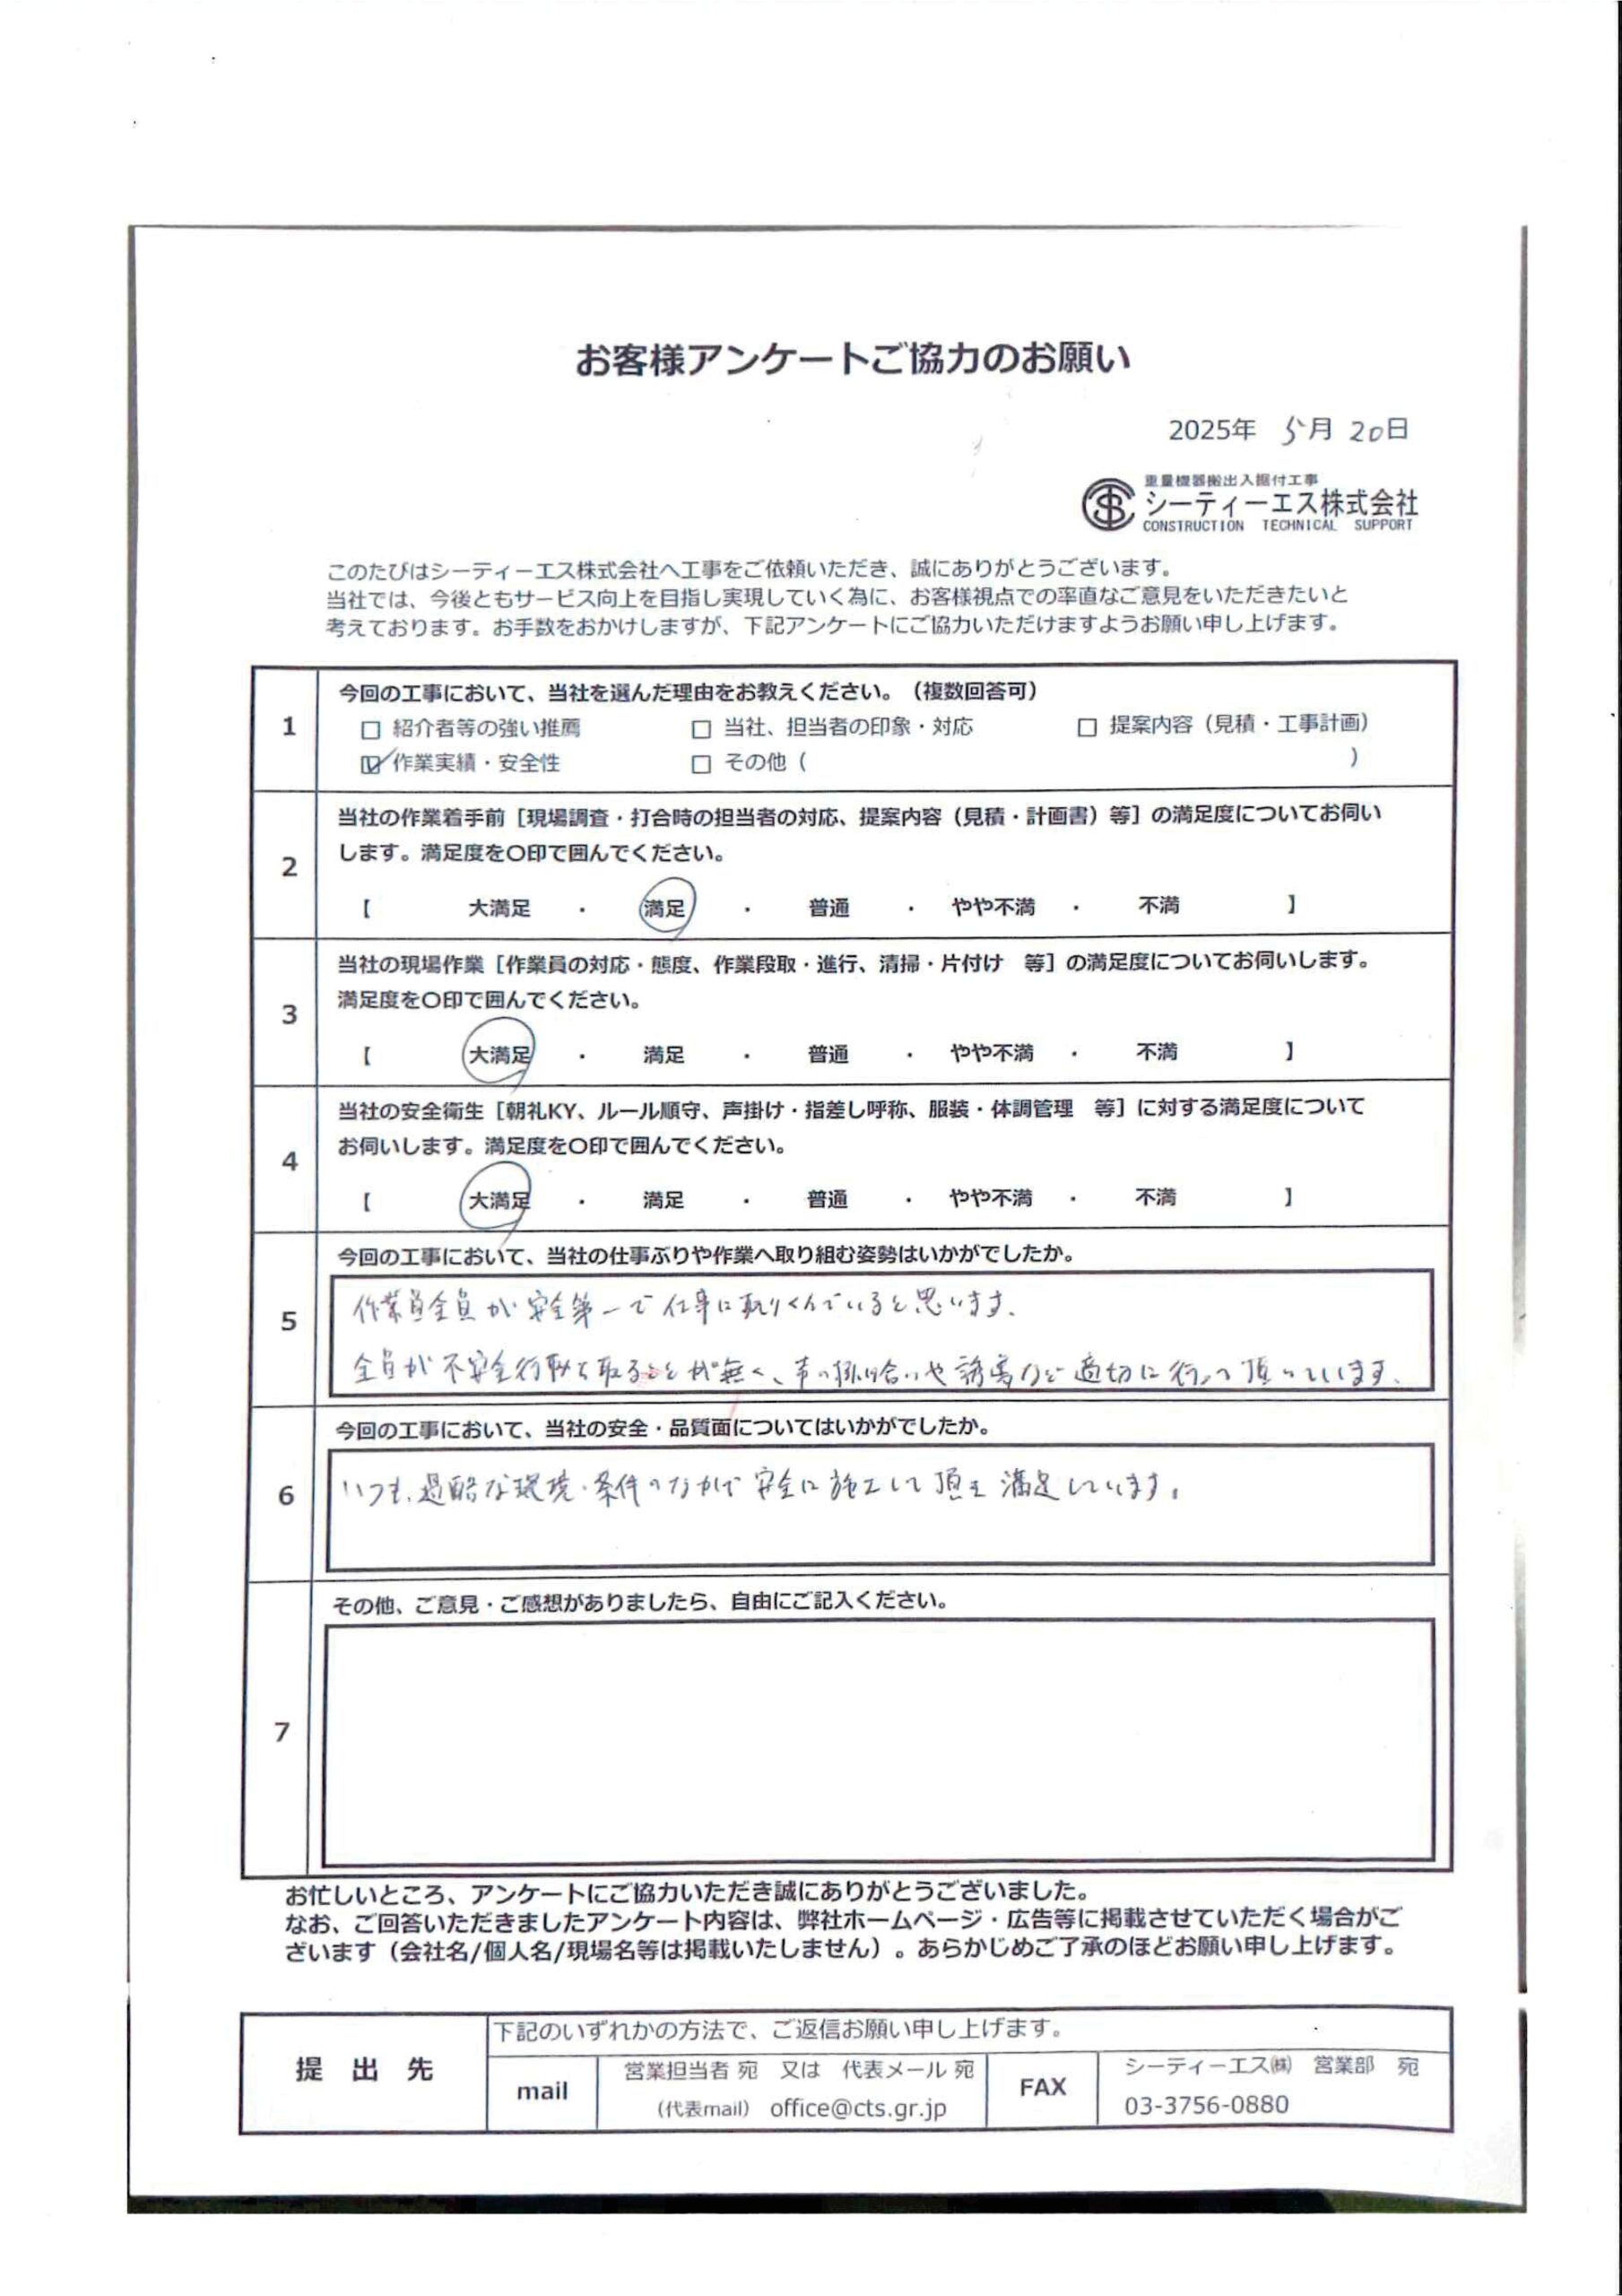 お客様アンケートご協力のお願い
2025年 5月 20日
重量機器搬出入据付工事
シーティーエス株式会社
CONSTRUCTION TECHNICAL SUPPORT
このたびはシーティーエス株式会社へ工事をご依頼いただき、誠にありがとうございます。
当社では、今後ともサービス向上を目指し実現していく為に、お客様視点での率直なご意見をいただきたいと
考えております。お手数をおかけしますが、下記アンケートにご協力いただけますようお願い申し上げます。
1
今回の工事において、当社を選んだ理由をお教えください。（複数回答可）
□ 紹介者等の強い推薦 □ 当社、担当者の印象・対応 □ 提案内容（見積・工事計画）
☑ 作業実績・安全性 □ その他（ ）
2
当社の作業着手前［現場調査・打合時の担当者の対応、提案内容（見積・計画書）等］の満足度についてお伺い
します。満足度を〇印で囲んでください。
【 大満足 ・ 満足 ・ 普通 ・ やや不満 ・ 不満 】
3
当社の現場作業［作業員の対応・態度、作業段取・進行、清掃・片付け 等］の満足度についてお伺いします。
満足度を〇印で囲んでください。
【 大満足 ・ 満足 ・ 普通 ・ やや不満 ・ 不満 】
4
当社の安全衛生［朝礼KY、ルール順守、声掛け・指差し呼称、服装・体調管理 等］に対する満足度について
お伺いします。満足度を〇印で囲んでください。
【 大満足 ・ 満足 ・ 普通 ・ やや不満 ・ 不満 】
5
今回の工事において、当社の仕事ぶりや作業へ取り組む姿勢はいかがでしたか。
作業員全員が安全第一で仕事に取りくんでいると思います。
全員が不安全行動を取ることが無く、声の掛け合いや誘導など適切に行って頂いています。
6
今回の工事において、当社の安全・品質面についてはいかがでしたか。
いつも、過酷な環境・条件のなかで安全に施工して頂き満足しています。
7
その他、ご意見・ご感想がありましたら、自由にご記入ください。
お忙しいところ、アンケートにご協力いただき誠にありがとうございました。
なお、ご回答いただきましたアンケート内容は、弊社ホームページ・広告等に掲載させていただく場合がご
ざいます（会社名/個人名/現場名等は掲載いたしません）。あらかじめご了承のほどお願い申し上げます。
提出先
下記のいずれかの方法で、ご返信お願い申し上げます。
mail
営業担当者 宛 又は 代表メール 宛
（代表mail） office@cts.gr.jp
FAX
シーティーエス㈱ 営業部 宛
03-3756-0880